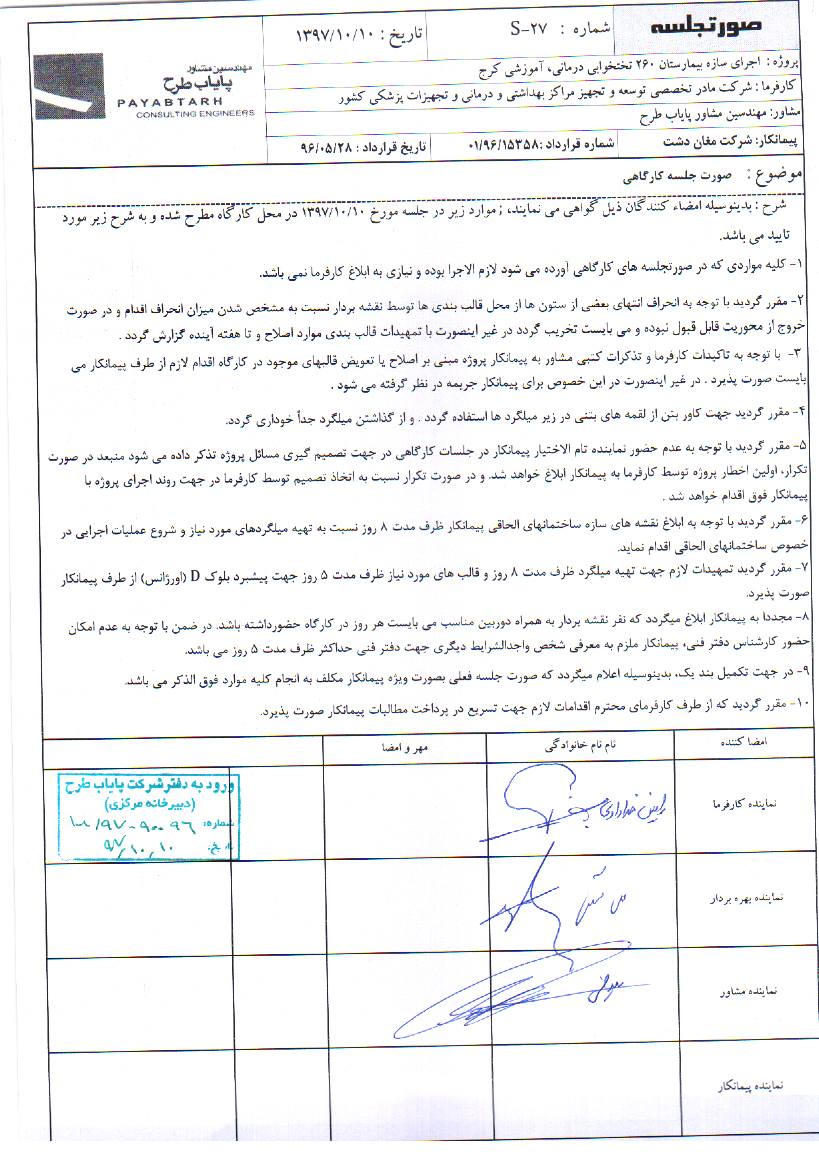 صورتجلسه
شماره : S-۲۷
تاریخ : ۱۳۹۷/۱۰/۱۰
مهندسین مشاور
پایاب طرح
PAYABTARH
CONSULTING ENGINEERS
پروژه : اجرای سازه بیمارستان ۲۶۰ تختخوابی درمانی، آموزشی کرج
کارفرما : شرکت مادر تخصصی توسعه و تجهیز مراکز بهداشتی و درمانی و تجهیزات پزشکی کشور
مشاور: مهندسین مشاور پایاب طرح
پیمانکار: شرکت مغان دشت
شماره قرارداد :۰۱/۹۶/۱۵۳۵۸
تاریخ قرارداد : ۹۶/۰۵/۲۸
موضوع : صورت جلسه کارگاهی
شرح : بدینوسیله امضاء کنندگان ذیل گواهی می نمایند، ; موارد زیر در جلسه مورخ ۱۳۹۷/۱۰/۱۰ در محل کارگاه مطرح شده و به شرح زیر مورد
تایید می باشد.
۱- کلیه مواردی که در صورتجلسه های کارگاهی آورده می شود لازم الاجرا بوده و نیازی به ابلاغ کارفرما نمی باشد.
۲- مقرر گردید با توجه به انحراف انتهای بعضی از ستون ها از محل قالب بندی ها توسط نقشه بردار نسبت به مشخص شدن میزان انحراف اقدام و در صورت
خروج از محوریت قابل قبول نبوده و می بایست تخریب گردد در غیر اینصورت با تمهیدات قالب بندی موارد اصلاح و تا هفته آینده گزارش گردد .
۳- با توجه به تاکیدات کارفرما و تذکرات کتبی مشاور به پیمانکار پروژه مبنی بر اصلاح یا تعویض قالبهای موجود در کارگاه اقدام لازم از طرف پیمانکار می
بایست صورت پذیرد . در غیر اینصورت در این خصوص برای پیمانکار جریمه در نظر گرفته می شود .
۴- مقرر گردید جهت کاور بتن از لقمه های بتنی در زیر میلگرد ها استفاده گردد . و از گذاشتن میلگرد جداً خوداری گردد.
۵- مقرر گردید با توجه به عدم حضور نماینده تام الاختیار پیمانکار در جلسات کارگاهی در جهت تصمیم گیری مسائل پروژه تذکر داده می شود منبعد در صورت
تکرار، اولین اخطار پروژه توسط کارفرما به پیمانکار ابلاغ خواهد شد. و در صورت تکرار نسبت به اتخاذ تصمیم توسط کارفرما در جهت روند اجرای پروژه با
پیمانکار فوق اقدام خواهد شد .
۶- مقرر گردید با توجه به ابلاغ نقشه های سازه ساختمانهای الحاقی پیمانکار ظرف مدت ۸ روز نسبت به تهیه میلگردهای مورد نیاز و شروع عملیات اجرایی در
خصوص ساختمانهای الحاقی اقدام نماید.
۷- مقرر گردید تمهیدات لازم جهت تهیه میلگرد ظرف مدت ۸ روز و قالب های مورد نیاز ظرف مدت ۵ روز جهت پیشبرد بلوک D (اورژانس) از طرف پیمانکار
صورت پذیرد.
۸- مجددا به پیمانکار ابلاغ میگردد که نفر نقشه بردار به همراه دوربین مناسب می بایست هر روز در کارگاه حضورداشته باشد. در ضمن با توجه به عدم امکان
حضور کارشناس دفتر فنی، پیمانکار ملزم به معرفی شخص واجدالشرایط دیگری جهت دفتر فنی حداکثر ظرف مدت ۵ روز می باشد.
۹- در جهت تکمیل بند یک، بدینوسیله اعلام میگردد که صورت جلسه فعلی بصورت ویژه پیمانکار مکلف به انجام کلیه موارد فوق الذکر می باشد.
۱۰- مقرر گردید که از طرف کارفرمای محترم اقدامات لازم جهت تسریع در پرداخت مطالبات پیمانکار صورت پذیرد.
امضا کننده
نام نام خانوادگی
مهر و امضا
نماینده کارفرما
ورود به دفتر شرکت پایاب طرح
(دبیرخانه مرکزی)
شماره:
تاریخ: ۹۷/۱۰/۱۰
نماینده بهره بردار
نماینده مشاور
نماینده پیمانکار